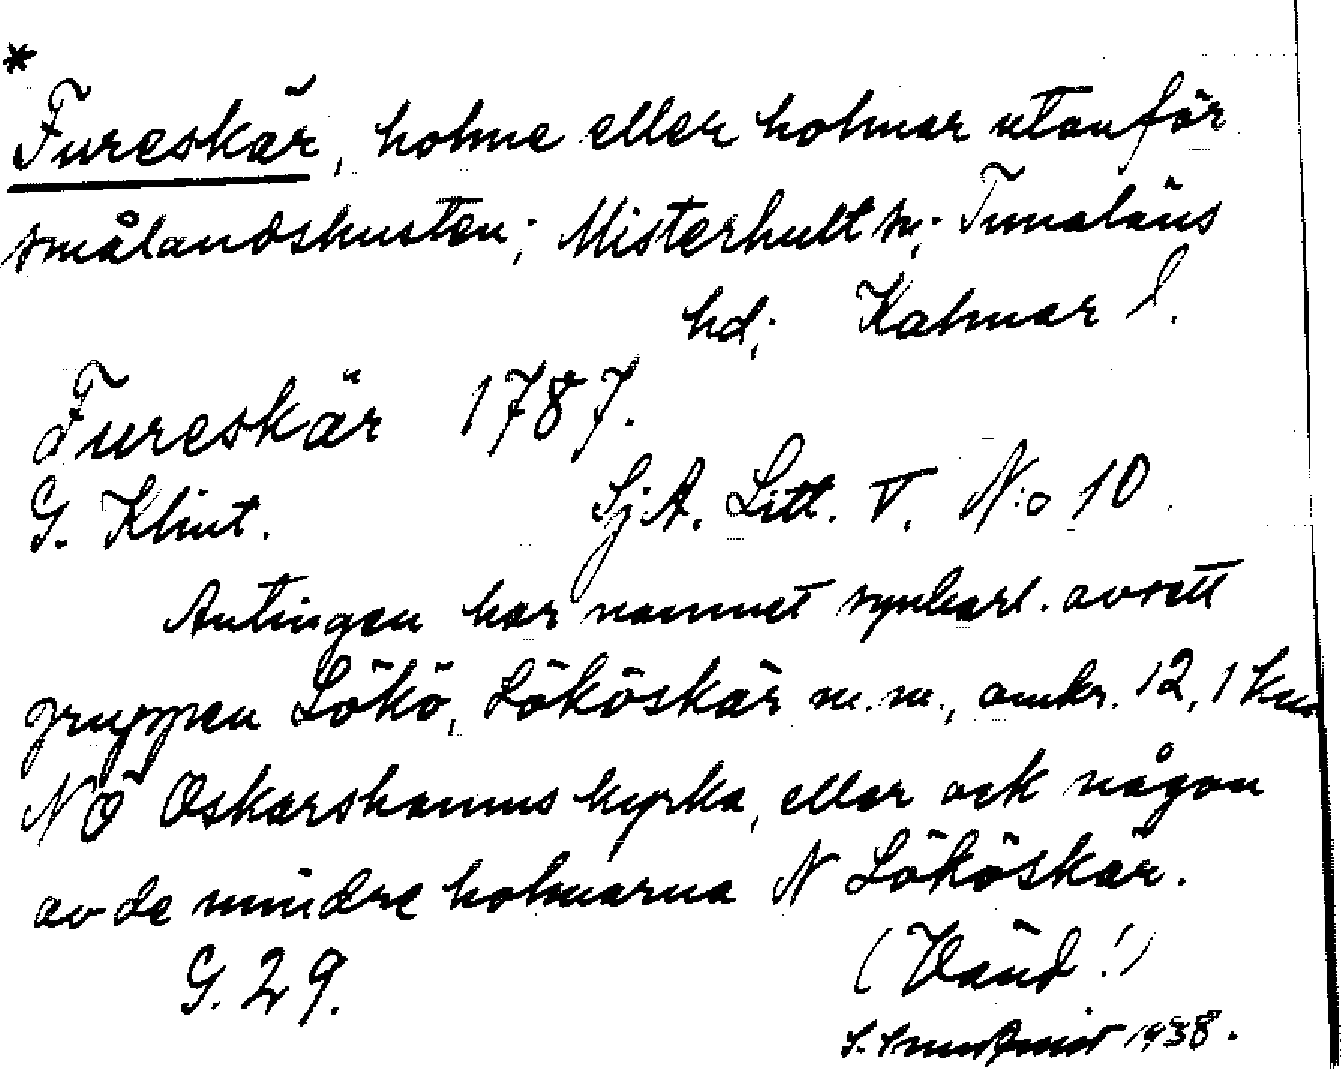 *
Fureskär, holme eller holmar utanför
smålandskusten; Misterhult sn; Tunaläns
hd; Kalmar l.
Fureskär 1787.
G. Klint. SjA. Litt. V. N:o 10.
Antingen har namnet synbarl. avsett
gruppen Lökö, Lököskär m.m., omkr. 12,1 km
NÖ Oskarshamns kyrka, eller ock någon
av de mindre holmarna N Lököskär.
G. 29. (Vänd!)
1938.